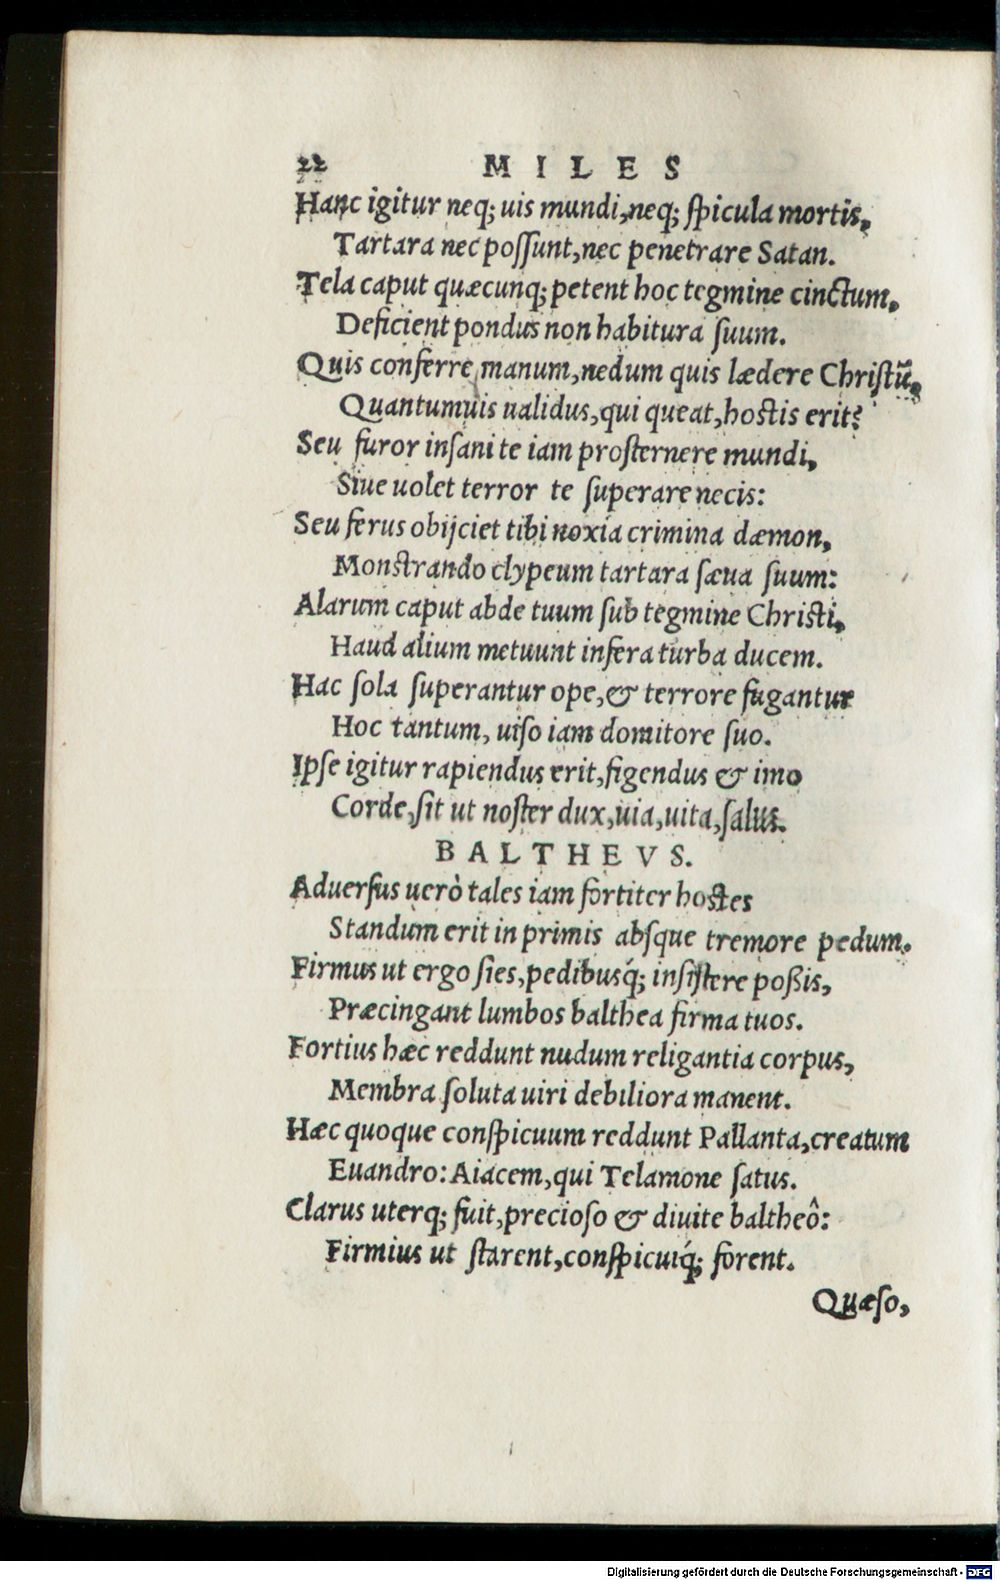 22 MILES
Hanc igitur neq; uis mundi, neq; ſpicula mortis,
Tartara nec poſſunt, nec penetrare Satan.
Tela caput quæcunq; petent hoc tegmine cinctum,
Deficient pondus non habitura ſuum.
Quis conferre manum, nedum quis lædere Chriſtũ,
Quantumuis ualidus, qui queat, hostis erit?
Seu furor inſani te iam proſternere mundi,
Siue uolet terror te ſuperare necis:
Seu ferus obijciet tibi noxia crimina dæmon,
Monstrando clypeum tartara ſæua ſuum:
Alarum caput abde tuum ſub tegmine Christi,
Haud alium metuunt infera turba ducem.
Hac ſola ſuperantur ope, & terrore fugantur
Hoc tantum, uiſo iam domitore ſuo.
Ipſe igitur rapiendus erit, figendus & imo
Corde, ſit ut noſter dux, uia, uita, ſalus.
BALTHEVS.
Aduerſus uerò tales iam fortiter hostes
Standum erit in primis abſque tremore pedum.
Firmus ut ergo ſies, pedibusq́; inſiſtere poßis,
Præcingant lumbos balthea firma tuos.
Fortius hæc reddunt nudum religantia corpus,
Membra ſoluta uiri debiliora manent.
Hæc quoque conſpicuum reddunt Pallanta, creatum
Euandro: Aiacem, qui Telamone ſatus.
Clarus uterq; fuit, precioſo & diuite baltheô:
Firmius ut ſtarent, conſpicuiq́; forent.
Quæſo,
Digitalisierung gefördert durch die Deutsche Forschungsgemeinschaft - DFG